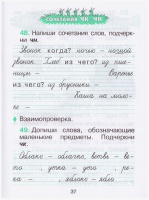 СОЧЕТАНИЯ ЧК, ЧН.
48. Напиши сочетания слов, подчеркни чн.
Звонок когда? ночью – ночной
звонок. Хлеб из чего? из пшеницы – . Варенье
из чего? из брусники –
. Каша на молоке –
Взаимопроверка.
49. Допиши слова, обозначающие
маленькие предметы. Подчеркни чк.
Облако – облачко, ветка – ве
, утка – у , река –
ре , яблоко – ябло
37